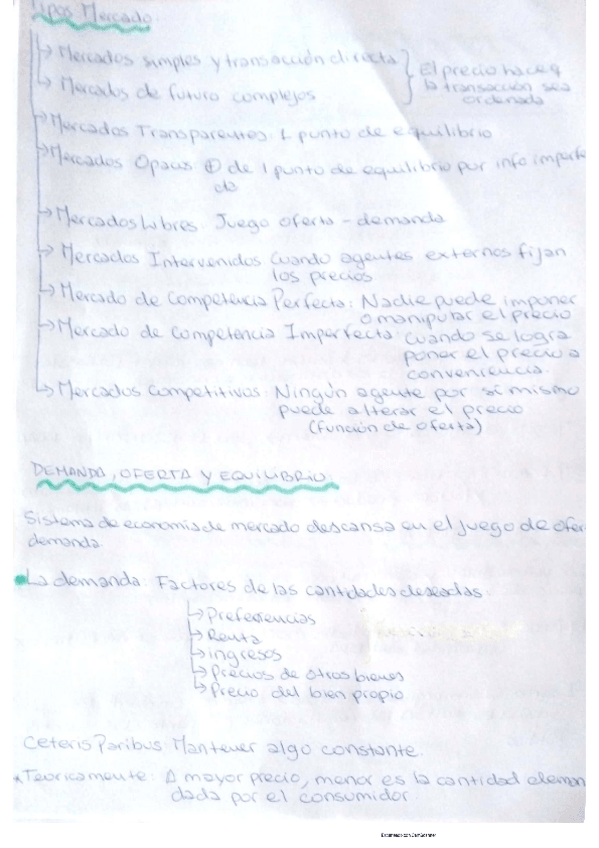 Tipos Mercado
→ Mercados simples y transacción directa
→ Mercados de futuro complejos
El precio hace q
la transacción sea
ordenada
→ Mercados Transparentes: 1 punto de equilibrio
→ Mercados Opacos ⊕ de 1 punto de equilibrio por info imperfe
cta
→ Mercados Libres: Juego oferta - demanda
→ Mercados Intervenidos: Cuando agentes externos fijan
los precios
→ Mercado de Competencia Perfecta: Nadie puede imponer
o manipular el precio
→ Mercado de competencia Imperfecta: cuando se logra
poner el precio a
conveniencia.
→ Mercados Competitivos: Ningún agente por sí mismo
puede alterar el precio
(Función de oferta)
DEMANDA, OFERTA Y EQUILIBRIO
Sistema de economía de mercado descansa en el juego de ofer
demanda.
La demanda: Factores de las cantidades deseadas:
→ Preferencias
→ Renta
→ ingresos
→ Precios de otros bienes
→ Precio del bien propio
Ceteris Paribus: Mantener algo constante.
* Teóricamente: A mayor precio, menor es la cantidad deman
dada por el consumidor.
Escaneado con CamScanner